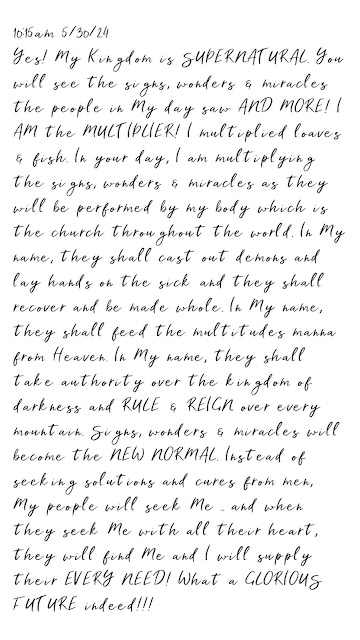 10:15am 5/30/24
Yes! My Kingdom is SUPERNATURAL. You
will see the signs, wonders & miracles
the people in My day saw AND MORE! I
AM the MULTIPLIER! I multiplied loaves
& fish. In your day, I am multiplying
the signs, wonders & miracles as they
will be performed by my body which is
the church throughout the world. In My
name, they shall cast out demons and
lay hands on the sick and they shall
recover and be made whole. In My name,
they shall feed the multitudes manna
from Heaven. In My name, they shall
take authority over the kingdom of
darkness and RULE & REIGN over every
mountain. Signs, wonders & miracles will
become the NEW NORMAL. Instead of
seeking solutions and cures from men,
My people will seek Me .. and when
they seek Me with all their heart,
they will find Me and I will supply
their EVERY NEED! What a GLORIOUS
FUTURE indeed!!!